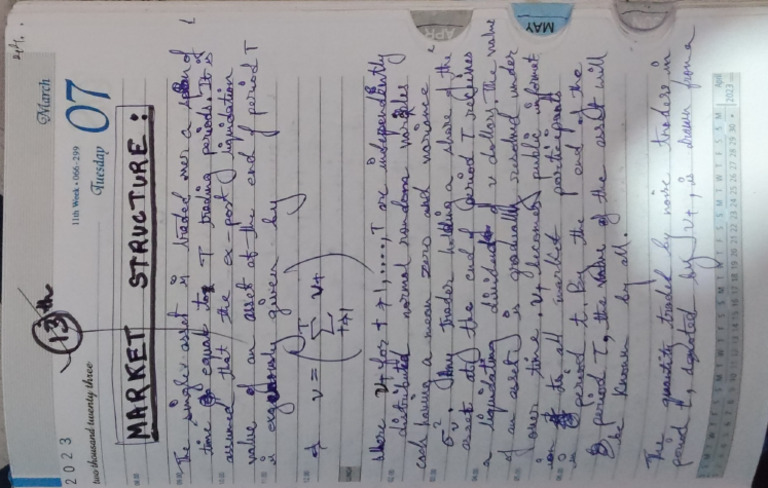 2023
March
two thousand twenty three
11th Week • 066-299
13th
Tuesday
07
MARKET STRUCTURE:
The single asset is traded over a
time equal to T trading periods. It is
assumed that the ex-post liquidation
value of an asset at the end of period T
is given by
v =
(∑ vt)
T
t=1
where vt for t = 1, ...., T are independently
distributed normal random variables
each having a mean zero and variance
σ²v. Any trader holding a share of the
asset at the end of period T receives
a liquidating dividend of v dollars. The value
of an asset is gradually resolved under
over time. vt becomes public informat
ion to all market participants
in period t. By the end of the
period T, the value of the asset will
be known by all.
The quantity traded by noise traders in
period t, denoted by is drawn from a
APR
MAY
April
2023